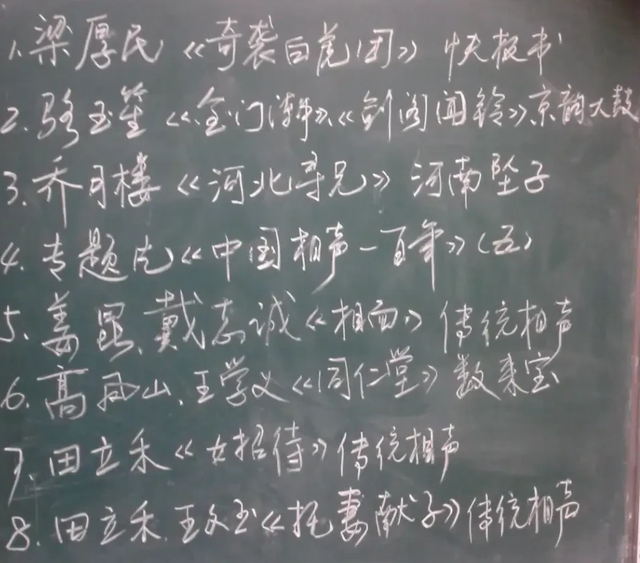 1.梁厚民《奇袭白虎团》快板书
2.骆玉笙《金门潮》《剑阁闻铃》京韵大鼓
3.乔月楼《河北寻兄》河南坠子
4.专题片《中国相声一百年》(五)
5.姜昆、戴志诚《相面》传统相声
6.高凤山、王学义《同仁堂》数来宝
7.田立禾《女招待》传统相声
8.田立禾、王文玉《托妻献子》传统相声